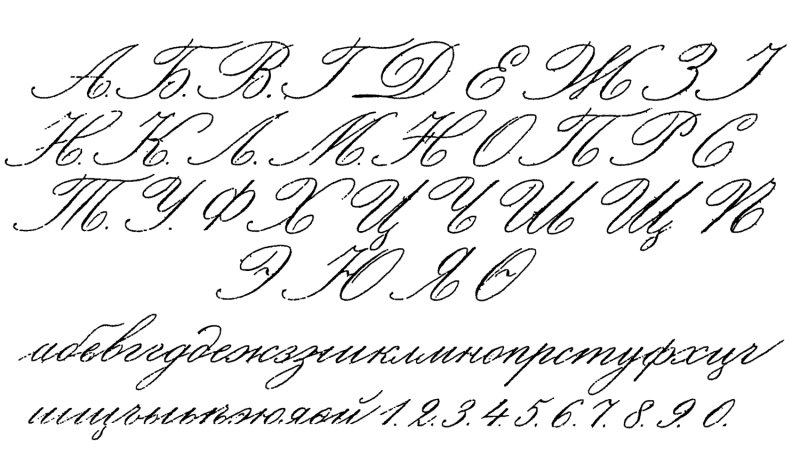 А. Б. В. Г Д Е Ж З І
И. К. Л. М. Н О П Р С
Т. У. Ф Х Ц Ч Ш Щ Ѣ
Э Ю Я Ѳ
абввггддежззиклмнопрстуфхцч
шщъыьѣэюяѳй 1. 2. 3. 4. 5. 6. 7. 8. 9. 0.